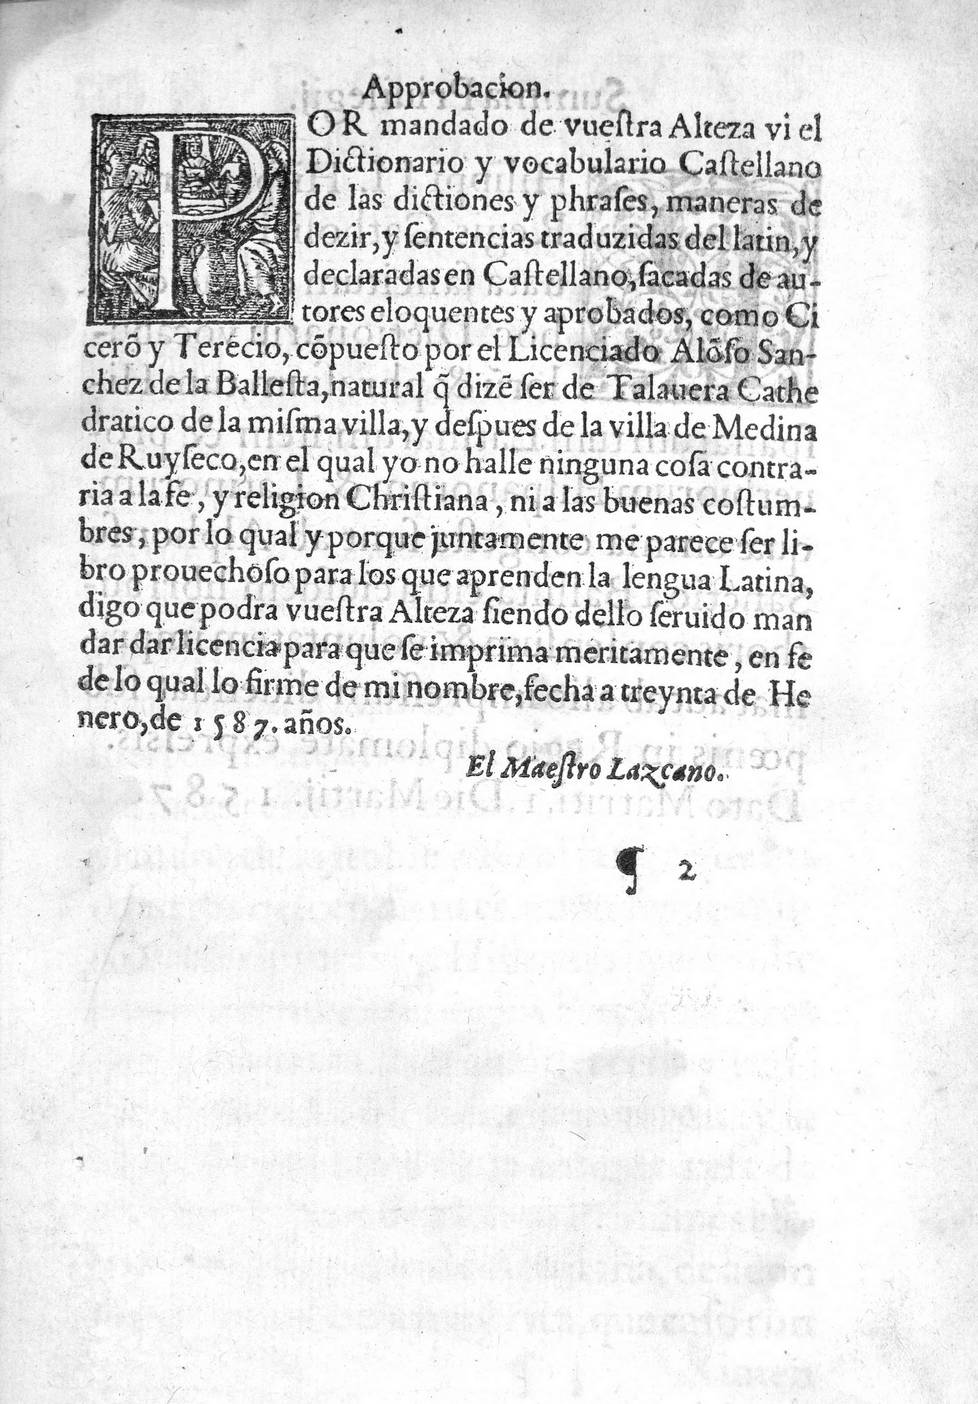 Approbacion.
POR mandado de vueſtra Alteza vi el
Dictionario y vocabulario Caſtellano
de las dictiones y phraſes, maneras de
dezir, y ſentencias traduzidas del latin, y
declaradas en Caſtellano, ſacadas de au-
tores eloquentes y aprobados, como Ci
cerõ y Terẽcio, cõpueſto por el Licenciado Alõſo San-
chez de la Balleſta, natural q̃ dizẽ ſer de Talauera Cathe
dratico de la miſma villa, y deſpues de la villa de Medina
de Ruyſeco, en el qual yo no halle ninguna coſa contra-
ria a la fe, y religion Chriſtiana, ni a las buenas coſtum-
bres, por lo qual y porque juntamente me parece ſer li-
bro prouechoſo para los que aprenden la lengua Latina,
digo que podra vueſtra Alteza ſiendo dello ſeruido man
dar dar licencia para que ſe imprima meritamente, en fe
de lo qual lo firme de mi nombre, fecha a treynta de He
nero, de 1587. años.
El Maeſtro Lazcano.
¶ 2